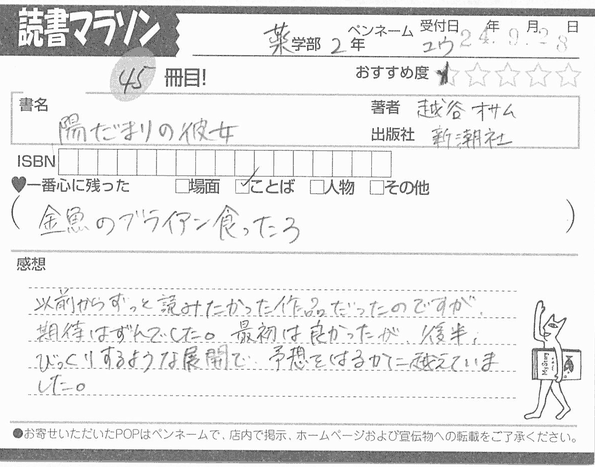 読書マラソン
薬学部 2年 ペンネーム ユウ 受付日 24年 9月 28日
45 冊目! おすすめ度 ☆☆☆☆☆
書名 陽だまりの彼女
著者 越谷オサム
出版社 新潮社
ISBN
♥一番心に残った □場面 ☑ことば □人物 □その他
(金魚のブライアン食ったろ)
感想
以前からずっと読みたかった作品だったのですが、
期待はずんでした。最初は良かったが、後半、
びっくりするような展開で、予想をはるかに越えていま
した。
●お寄せいただいたPOPはペンネームで、店内で掲示、ホームページおよび宣伝物への転載をご了承ください。